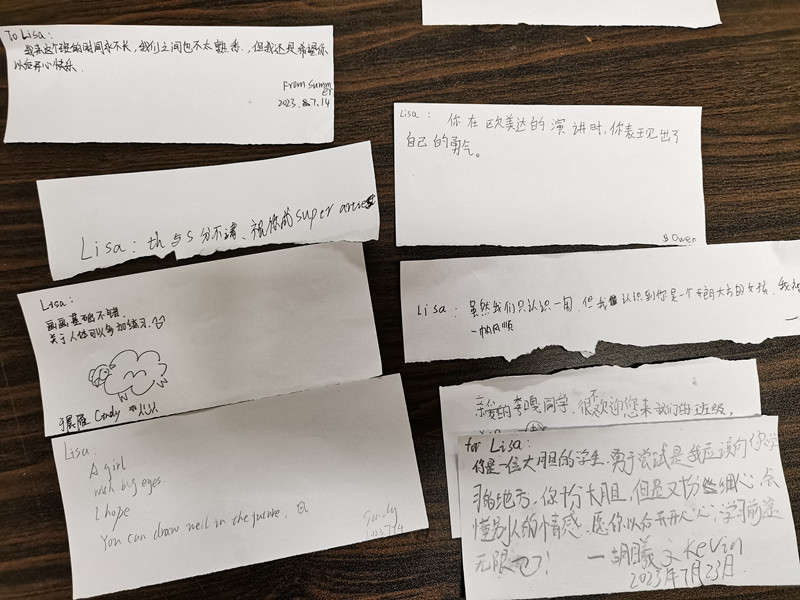 To Lisa:
我来这个班的时间永不长，我们之间也不太熟悉，但我还是希望你
以后开心快乐.
From Summer
2023.8.7.14
Lisa: 你在欧美达的演讲时，你表现出了
自己的勇气。
Owen
Lisa: th与s分不清、祝你成super
Lisa:
画画基础不错.
关于人体可以多加练习.
Cindy
Lisa: 虽然我们只认识一周，但我认识到你是一个大方的女孩，我
一帆风顺
Lisa:
A girl
with big eyes.
I hope
You can draw well in the future.
亲爱的李嘎同学，很不欢迎您来我们班级，
for Lisa:
你是一位大胆的学生，勇于尝试是我应该向你学
习的地方，你十分大胆，但是又十分细心，会
懂别人的情感，愿你以后天天开心，学习前途
无限
一胡曦文 Kevin
2023年7月23日.